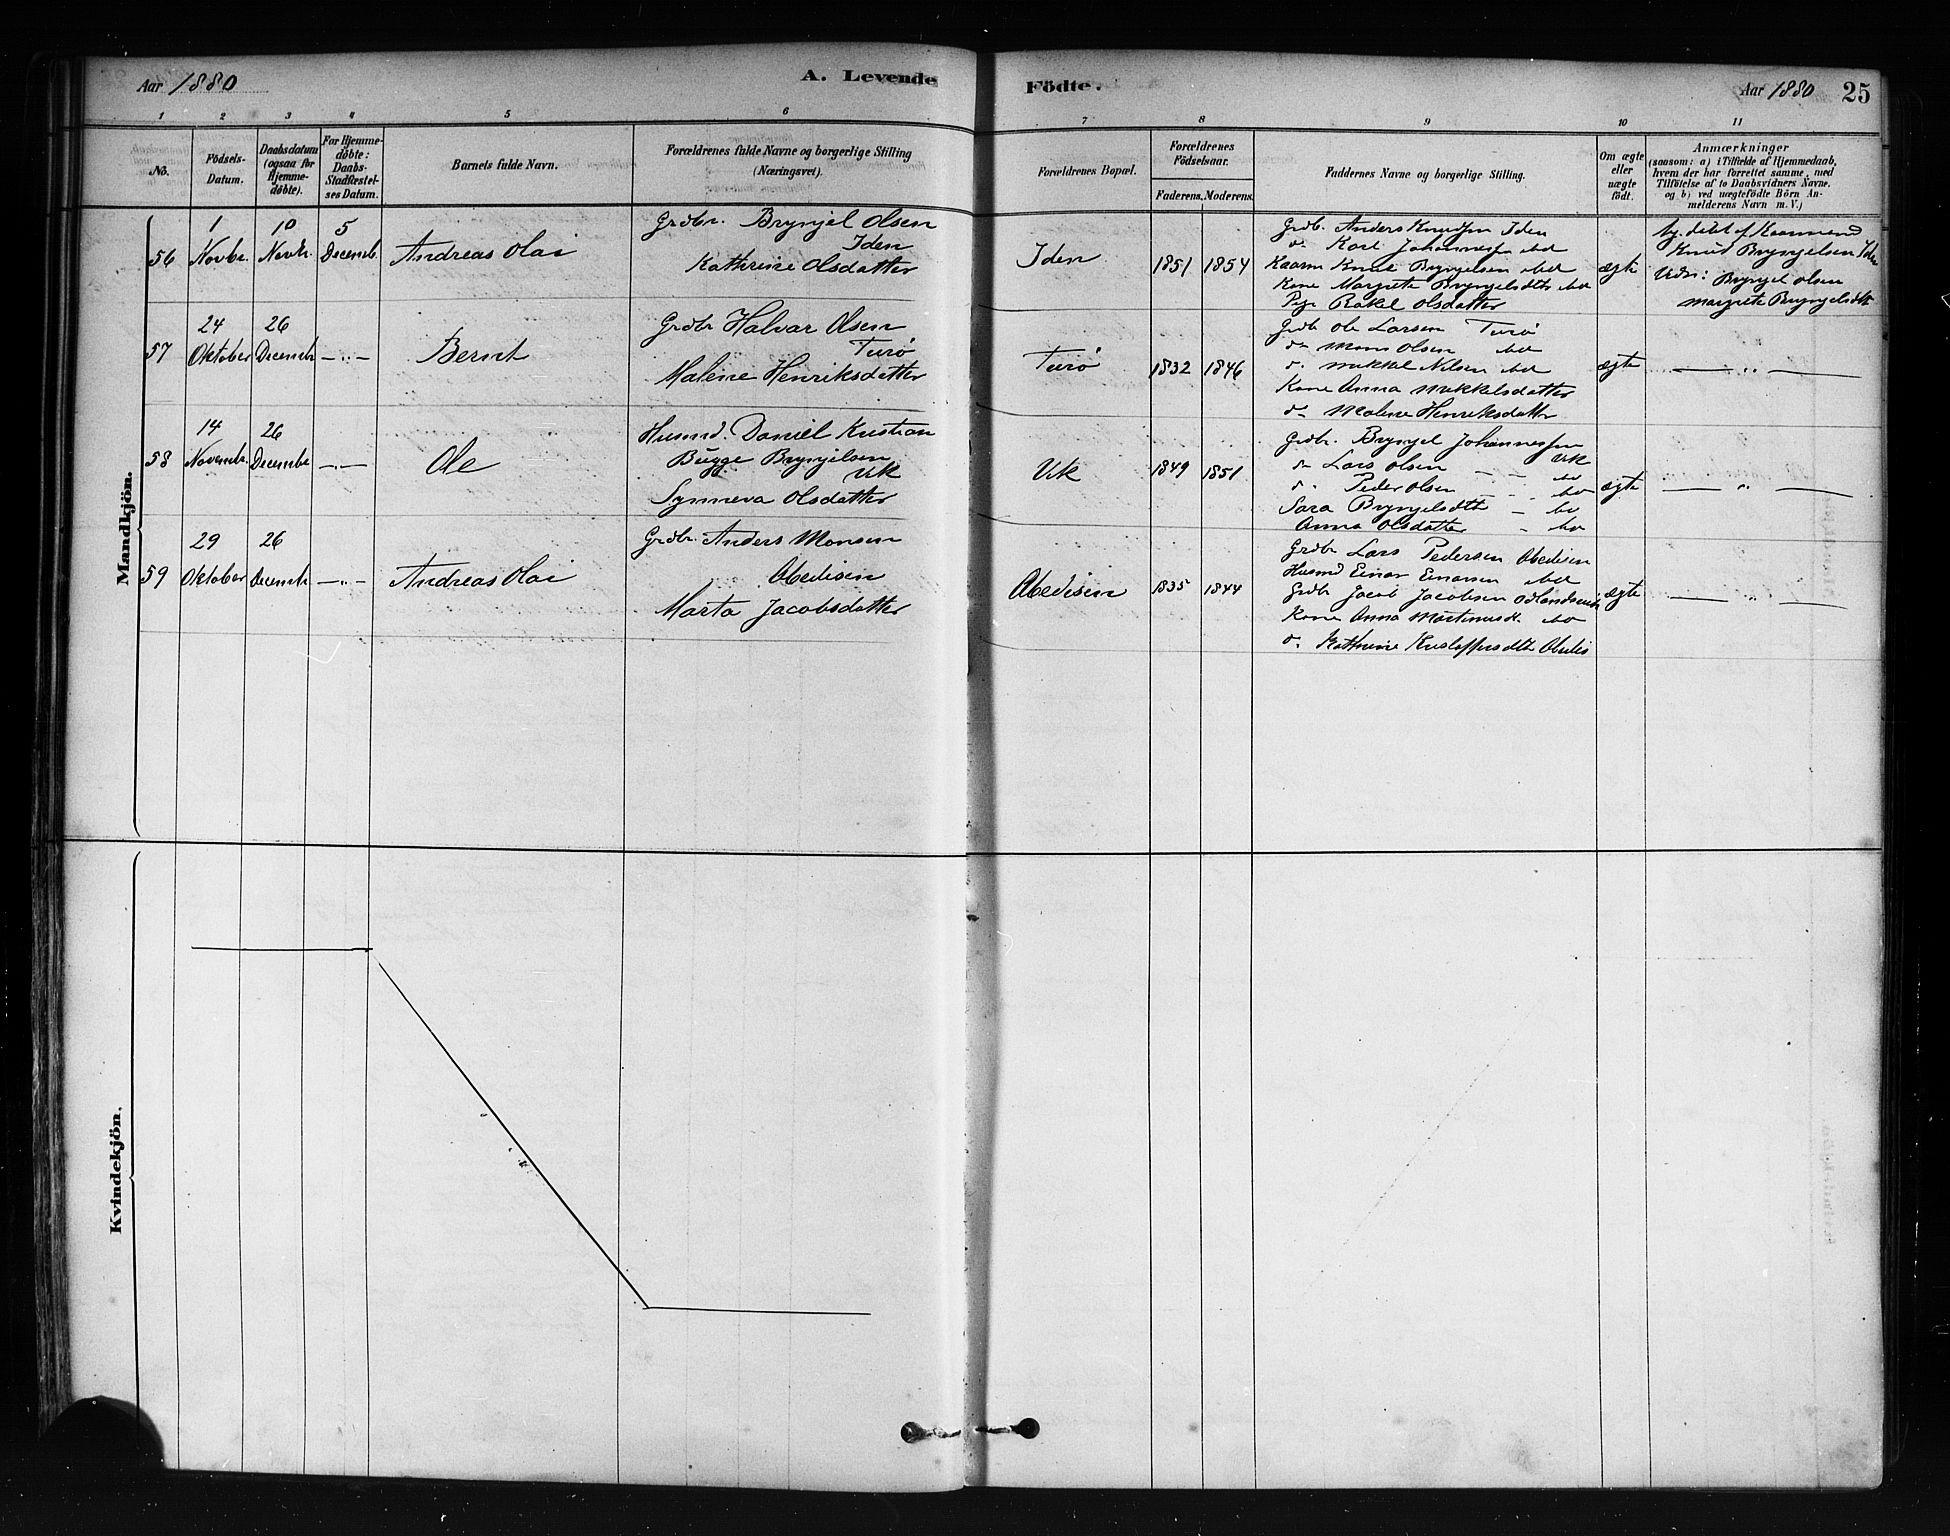 Aar 1880
A. Levende Födte.
Aar 1880 25
1 2 3 4 5 6 7 8 9 10 11
No.
Födsels-Datum.
Daabsdatum (ogsaa för Hjemme-döbte).
For Hjemme-döbte: Daabs-Stadfæstel-ses Datum.
Barnets fulde Navn.
Forældrenes fulde Navne og borgerlige Stilling (Næringsvei).
Forældrenes Bopæl.
Forældrenes Födselsaar.
Faderens. Moderens.
Faddernes Navne og borgerlige Stilling.
Om ægte eller uægte födt.
Anmærkninger
(saasom: a) i Tilfælde af Hjemmedaab,
hvem der har forrettet samme, med
Tilföielse af to Daabsvidners Navne,
og b) ved uægtefödte Börn An-
melderens Navn m. V.)
Mandkjön.
56
1 Novbr.
10 Novbr.
5 Decemb.
Andreas Olai
Grdbr. Brynjel Olsen
Iden
Kathrine Olsdatter
Iden
1851 1854
Grdb. Anders Knudsen Iden
do Karl Johannessen ibd
Kaarm Knut Brynjelsen ibd
Kone Margrete Brynjelsdtr ibd
Pige Rakel Olsdatter
ægte
hj. døbt af Kaarmand
Knut Brynjelsen Iden
Vidn: Brynjel Olsen
Margrete Brynjelsdtr
57
24 Oktober
26 Decembr
— " —
Bernt
Grdbr Halvar Olsen
Turø
Malene Henriksdatter
Turø
1832 1846
Grdb Ole Larsen Turø
do Mons Olsen ibd
do Mikkel Nilsen ibd
Kone Anna Mikkelsdatter
do Malene Henriksdattr
ægte
— " —
58
14 Novembr.
26 Decembr
— " —
Ole
Husmd. Daniel Kristian
Bugge Brynjelsen
Urk
Synneva Olsdatter
Urk
1849 1851
Grdbr. Brynjel Johannessen Urk
do Lars Olsen — ibd
do Peder Olsen — ibd
Sara Brynjelsdtr — ibd
Anna Olsdatter — ibd
ægte
— " —
59
29 Oktober
26 Decembr
— " —
Andreas Olai
Grdbr. Anders Monsen
Obedisen
Marta Jacobsdatter
Obedisen
1835 1844
Grdbr Lars Pedersen Obedisen
Husmd Einar Einarsen ibd
Grdbr Jacob Jacobsen
Kone Anna Martinusdt. ibd
do Kathrine Kristoffersdtr
ægte
— " —
Kvindekjön.